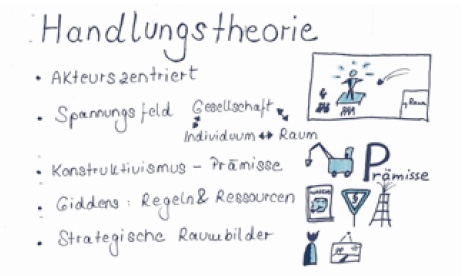 Handlungstheorie
• Akteurszentriert
• Spannungsfeld Gesellschaft
Individuum ↔ Raum
• Konstruktivismus - Prämisse
Prämisse
• Giddens: Regeln & Ressourcen
§
• Strategische Raumbilder